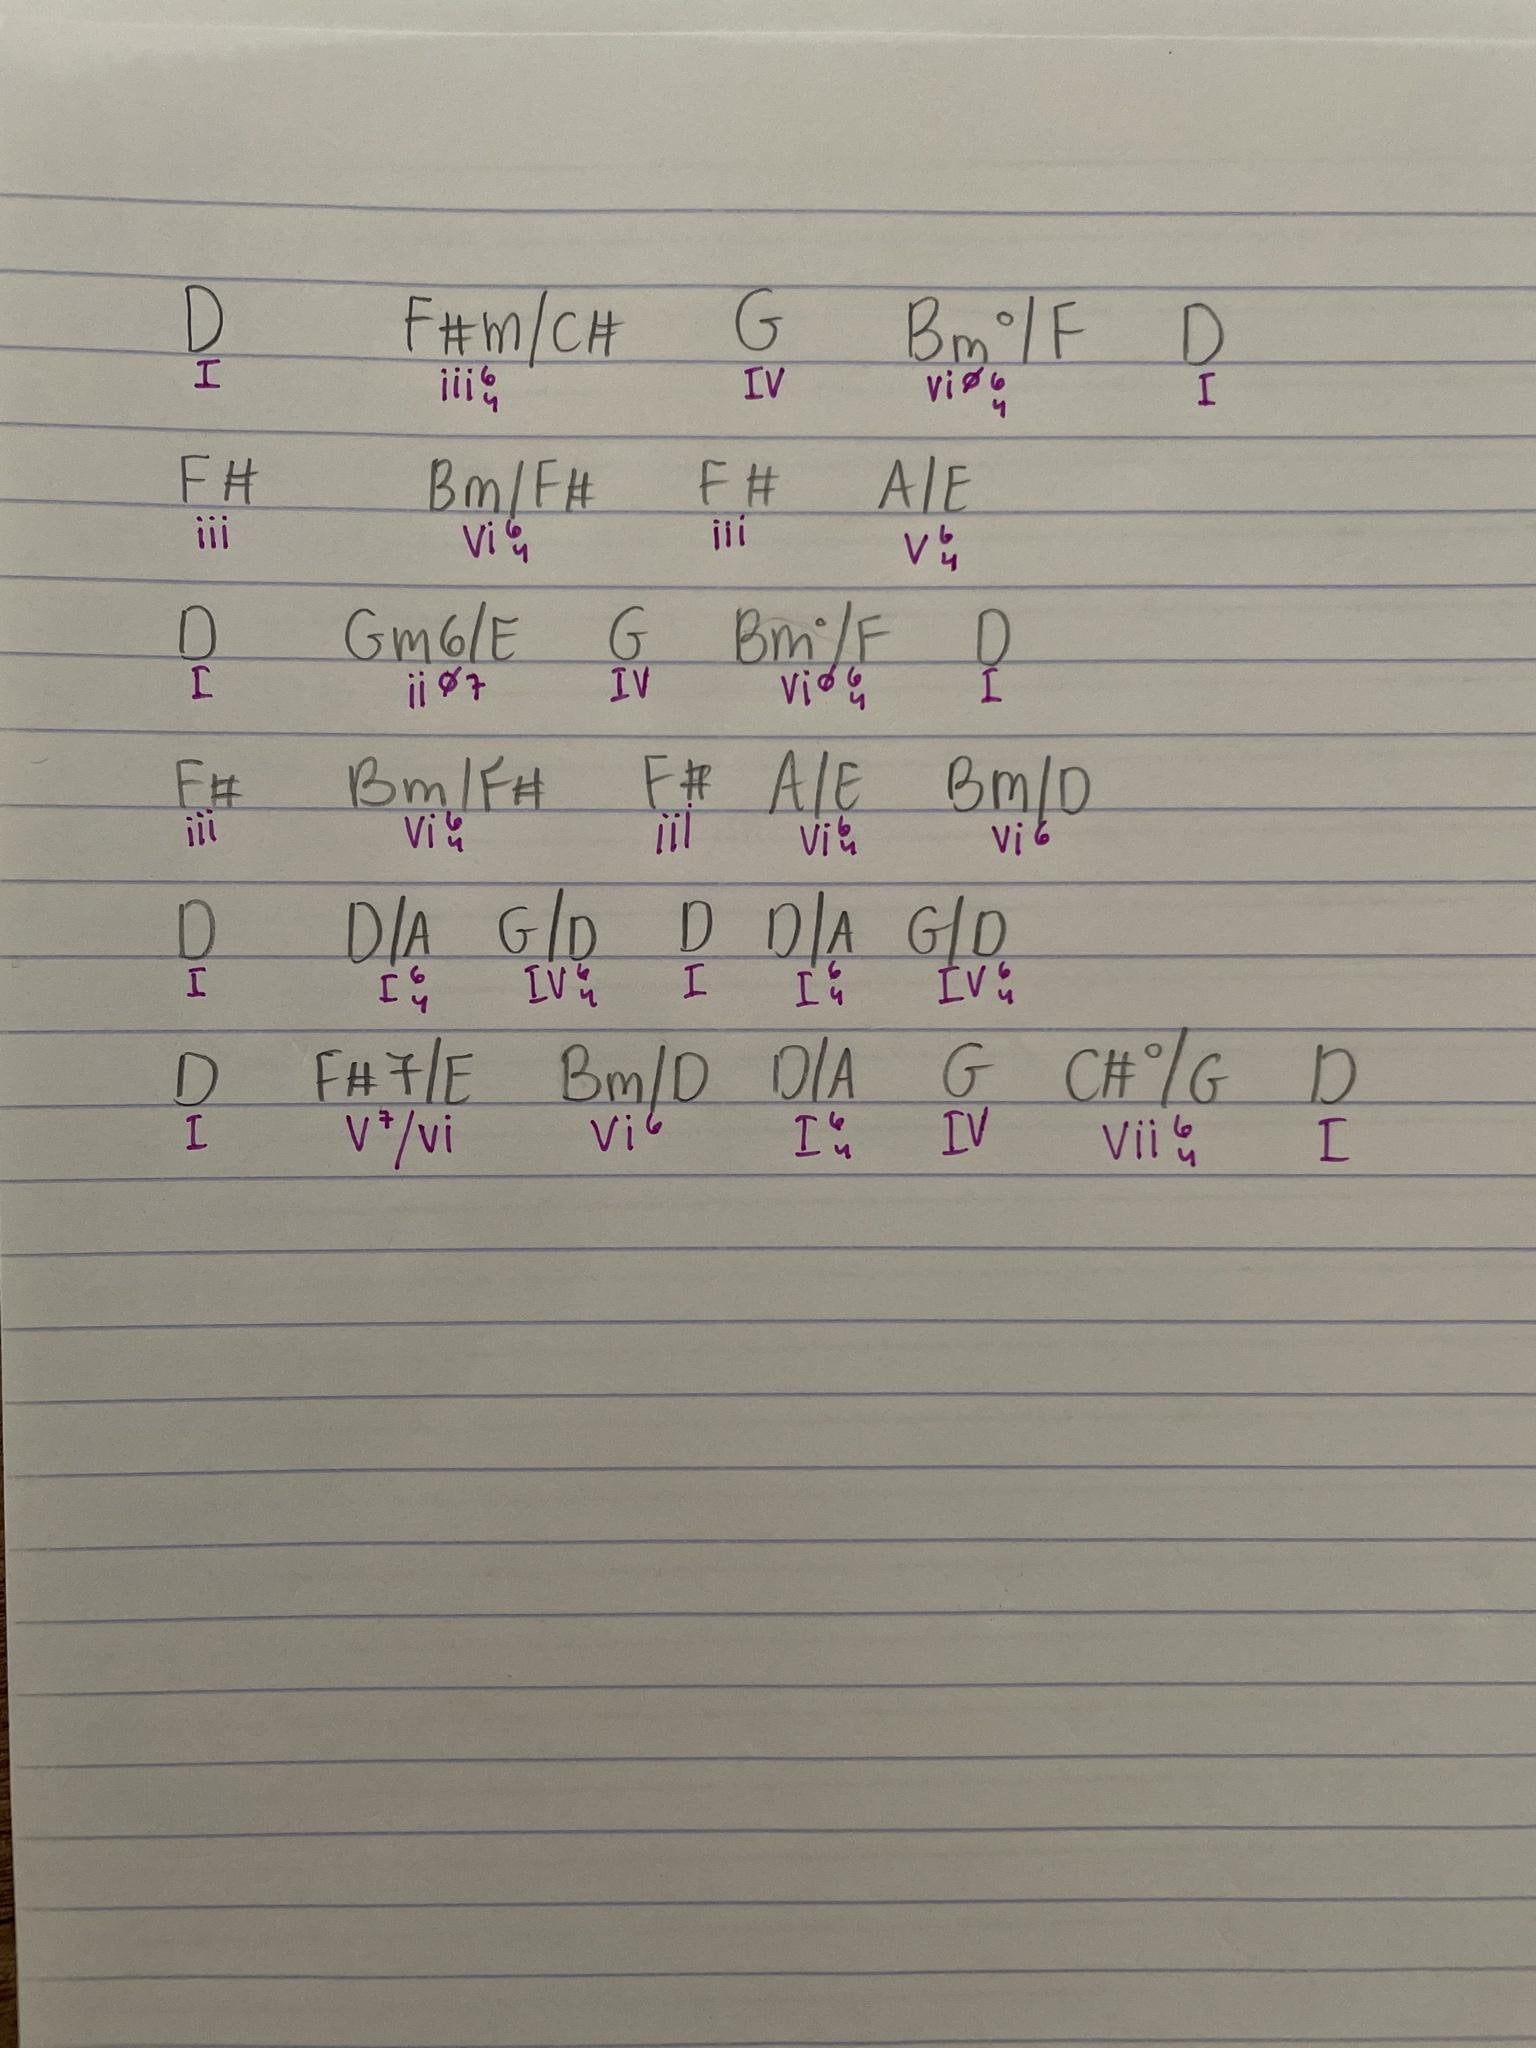 D F#m/C# G Bm°/F D
I iii6/4 IV viø6/4 I
F# Bm/F# F# A/E
iii vi6/4 iii V6/4
D Gm6/E G Bm°/F D
I iiø7 IV viø6/4 I
F# Bm/F# F# A/E Bm/D
iii vi6/4 iii vi6/4 vi6
D D/A G/D D D/A G/D
I I6/4 IV6/4 I I6/4 IV6/4
D F#7/E Bm/D D/A G C#°/G D
I V7/vi vi6 I6/4 IV vii6/4 I